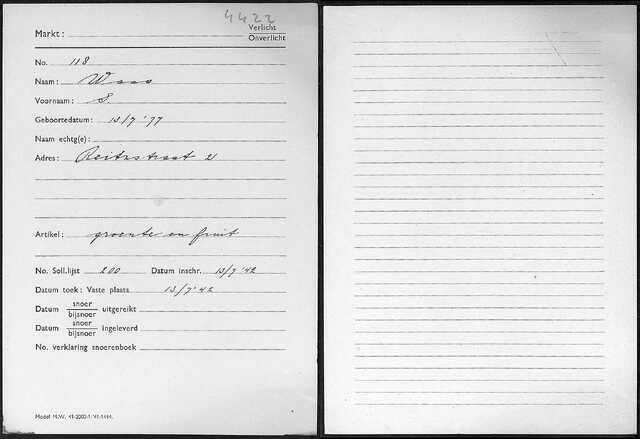 4422
Markt:
Verlicht
Onverlicht
No. 118
Naam: Waas
Voornaam: S.
Geboortedatum: 13/7 '77
Naam echtg(e):
Adres: Reitzstraat 21
Artikel: groente en fruit
No. Soll.lijst 200 Datum inschr. 13/7 '42
Datum toek: Vaste plaats 13/7 '42
Datum snoer
bijsnoer uitgereikt
Datum snoer
bijsnoer ingeleverd
No. verklaring snoerenboek
Model M.W.